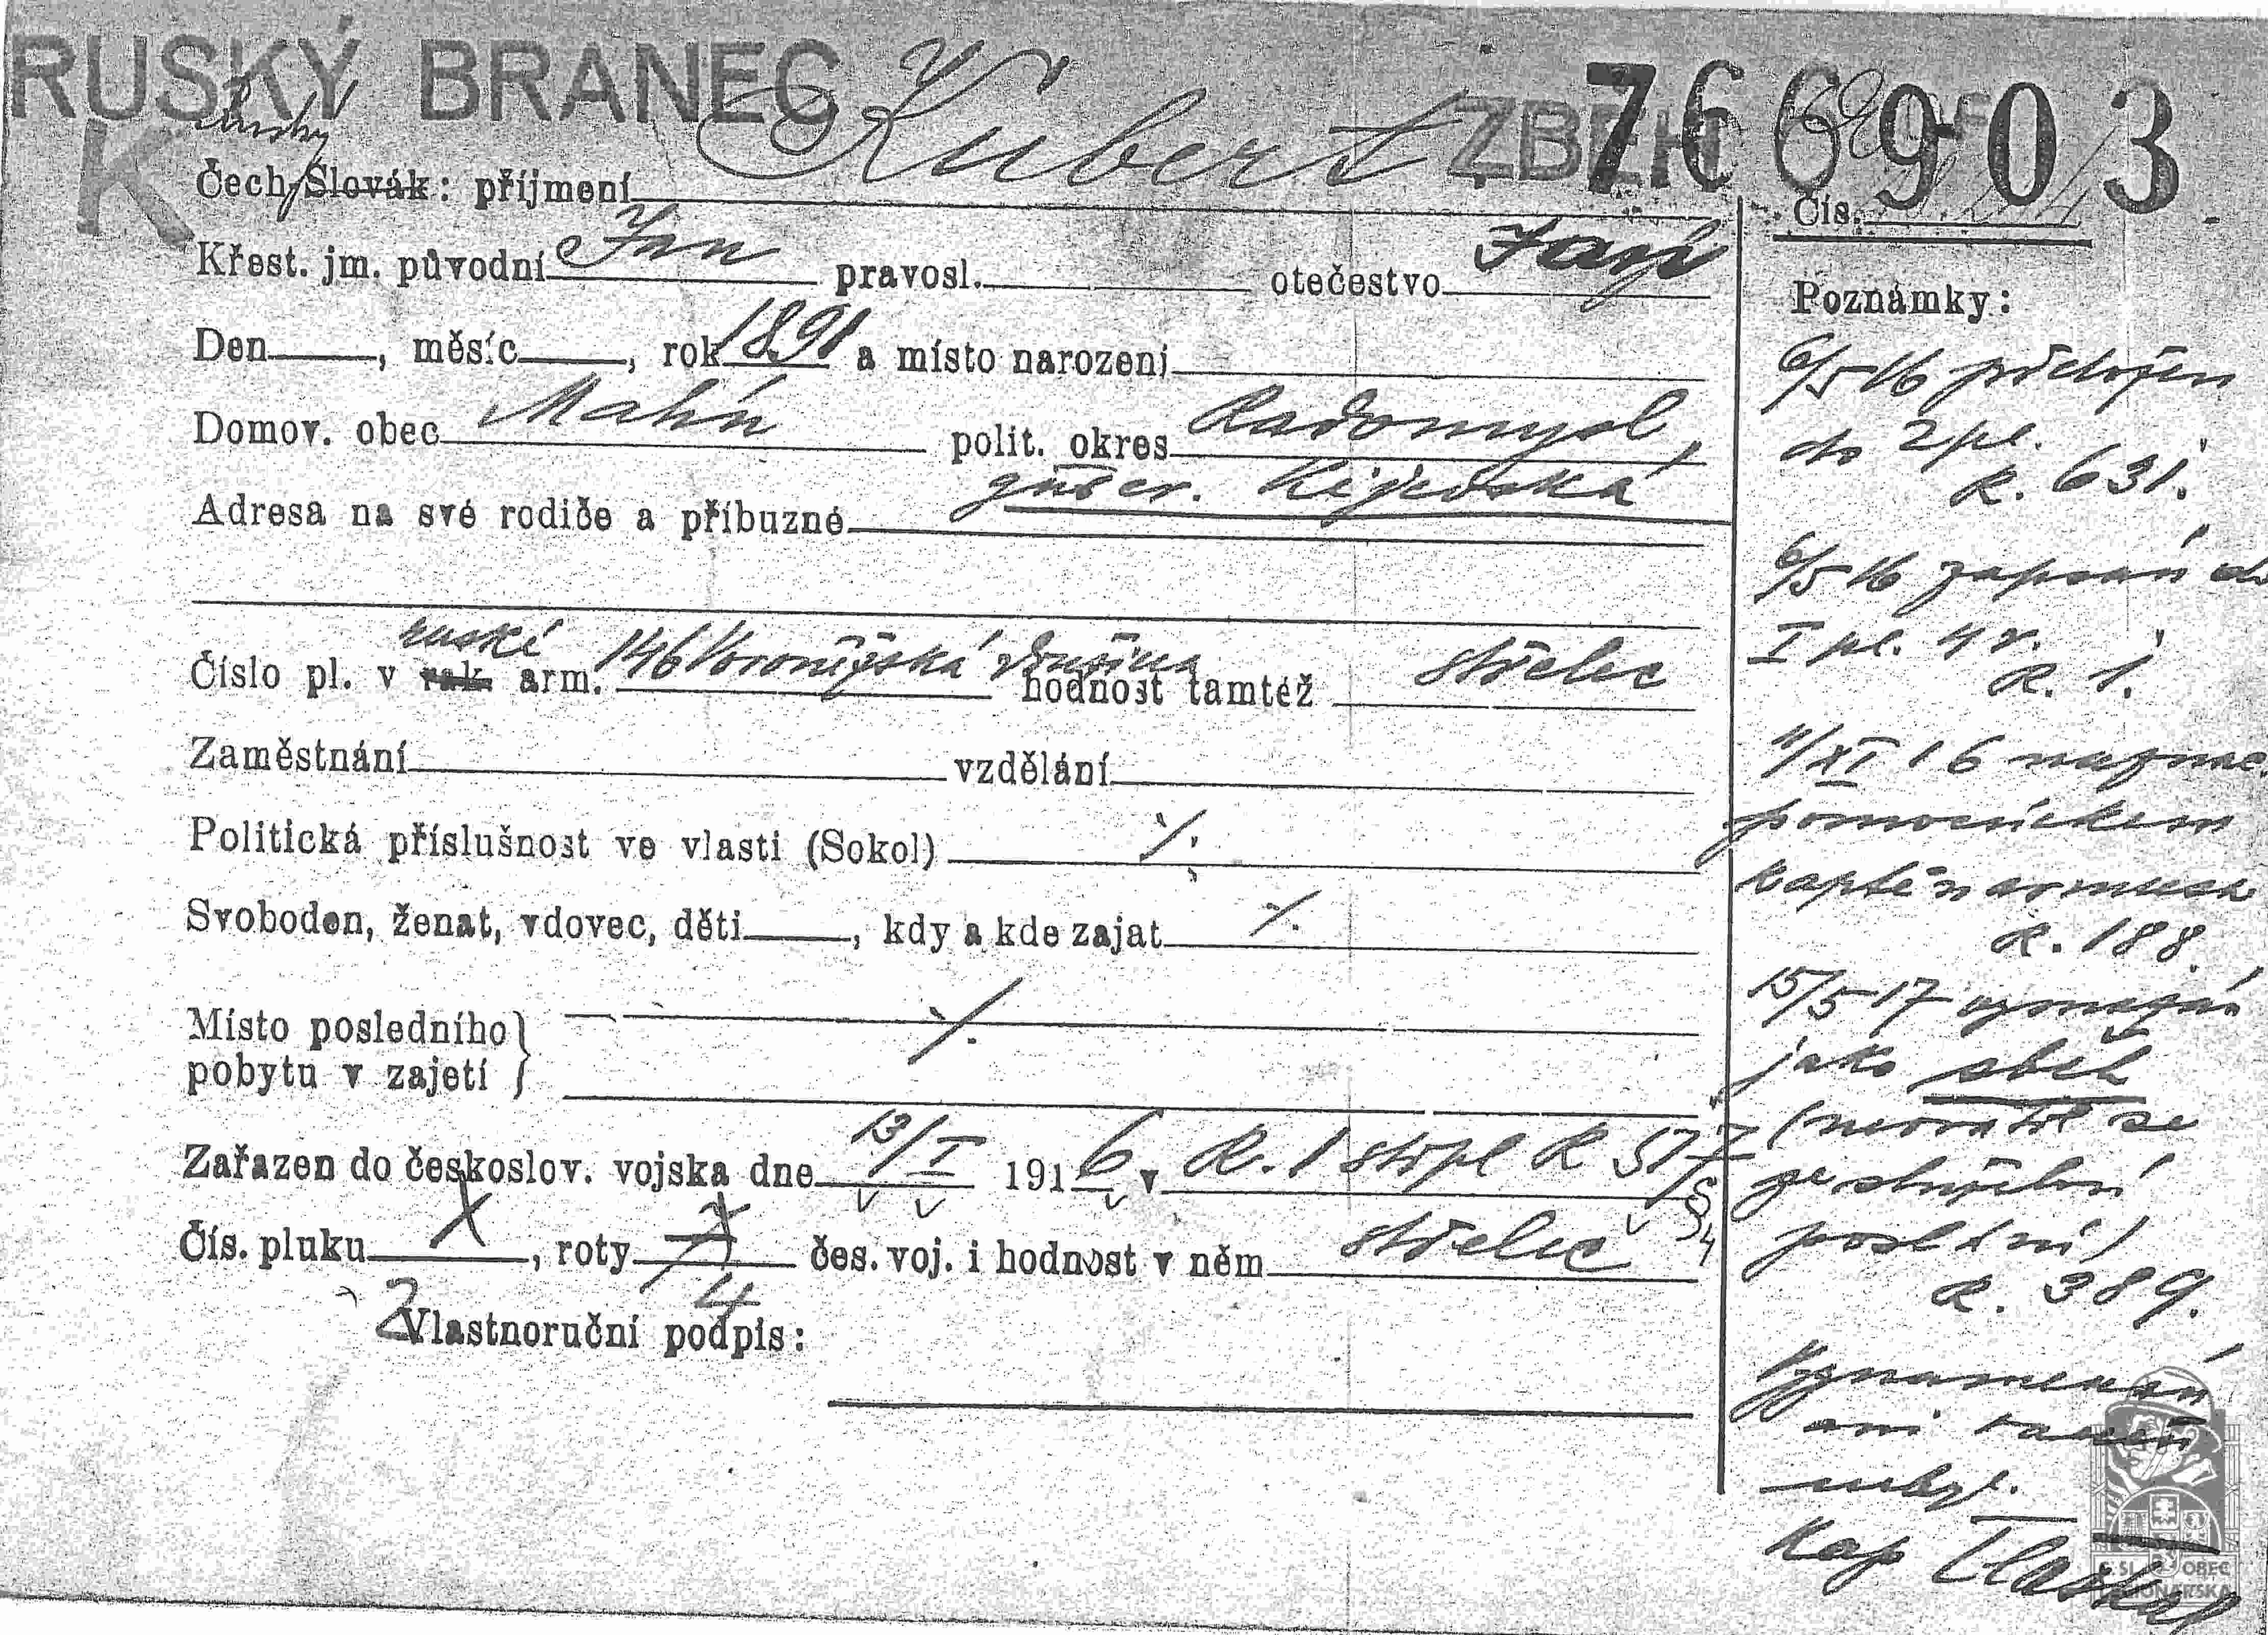 RUSKÝ BRANEC ZBĚH 766903
K ruský
Čech, Slovák: příjmení Kubert Čís.
Křest. jm. původní Jan pravosl. otečestvo Josif
Den , měsíc , rok 1891 a místo narození
Domov. obec Malin polit. okres Radomysl,
guber. Kijevská
Adresa na své rodiče a příbuzné
Číslo pl. v rak. ruské arm. 146 Voroněžská družina hodnost tamtéž střelec
Zaměstnání vzdělání
Politická příslušnost ve vlasti (Sokol) ·/.
Svoboden, ženat, vdovec, děti , kdy a kde zajat ·/.
Místo posledního
pobytu v zajetí ·/.
Zařazen do českoslov. vojska dne 13/I 1916 v R. 1 stř pl R 577 § 4
Čís. pluku X , roty čes. voj. i hodnost v něm střelec
2 4
Vlastnoruční podpis:
Poznámky:
6/5 16 přidělen
do 2 pl.
R. 631.
6/5 16 zapsán do
I pl. 4 r.
R. 1.
11/XI 16
pomocníkem
kaptěnarmusa
R. 188.
15/5 17 vymazán
jako sběh
(nevrátil se
ze služební
poslání)
R. 389.
Vyznamenán
ani raněn
nebyl.
Kap
ČSL OBEC
LEGIONÁŘSKÁ